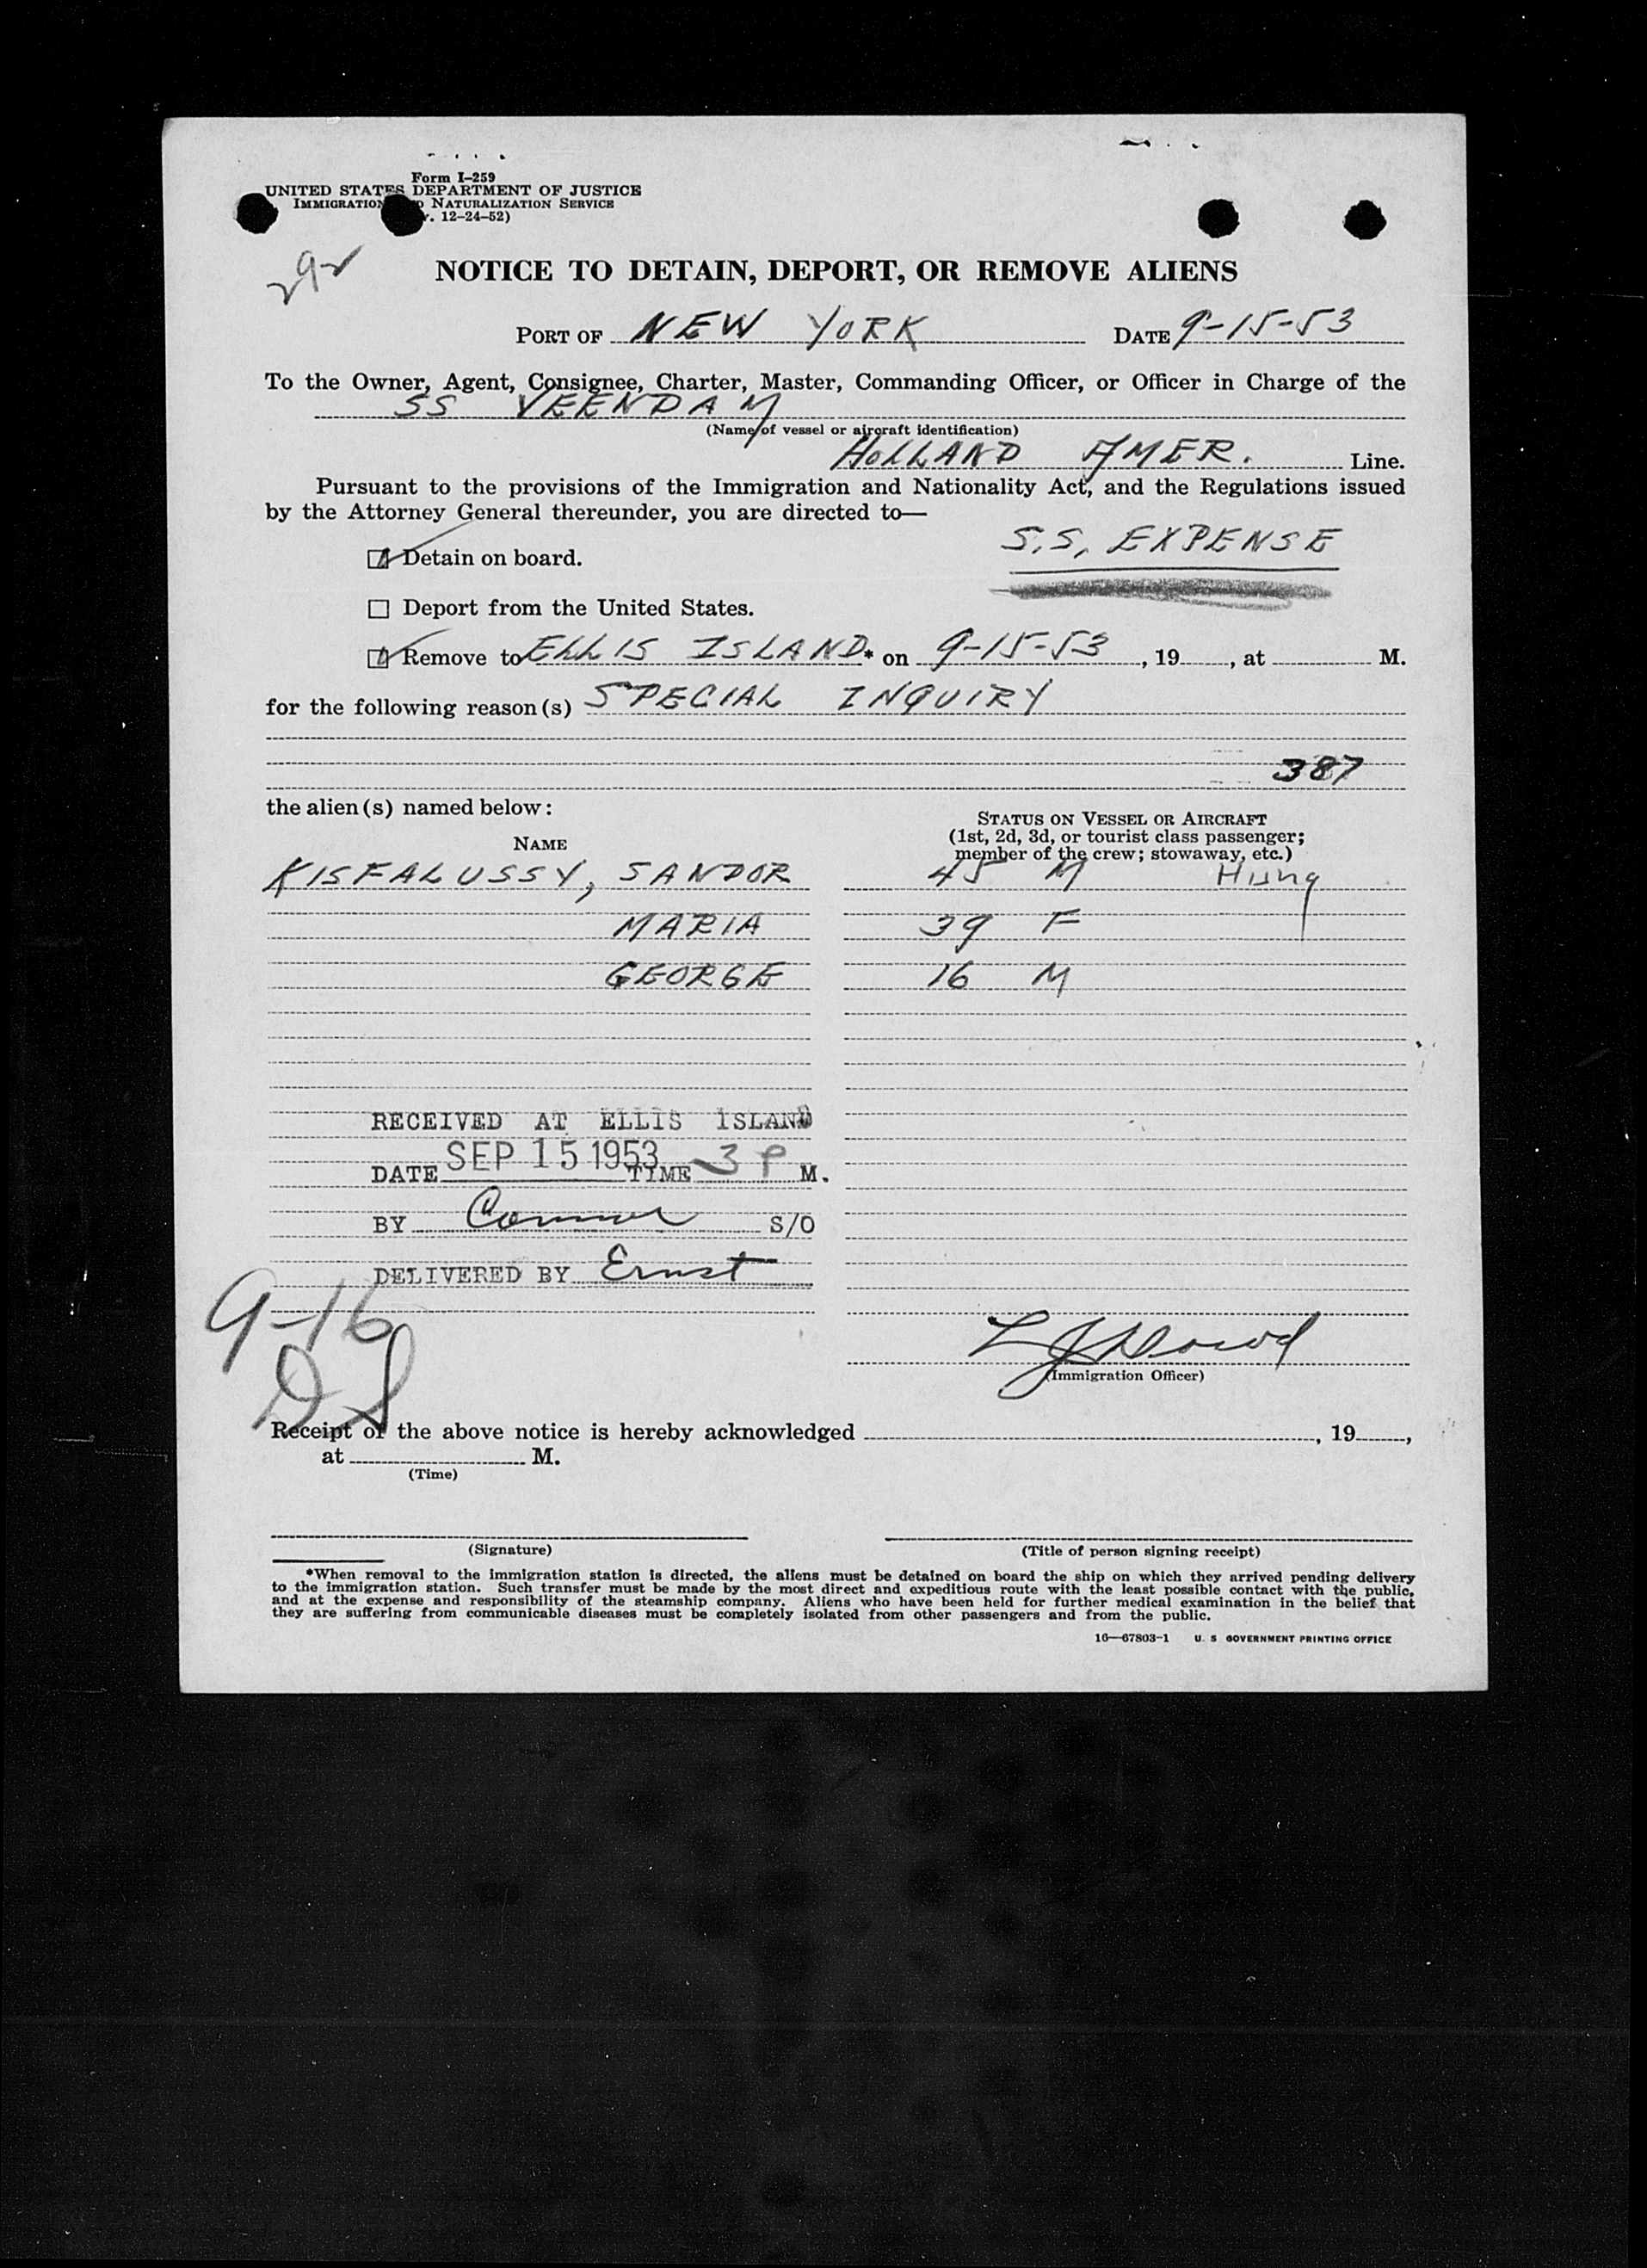 Form I-259
UNITED STATES DEPARTMENT OF JUSTICE
IMMIGRATION NATURALIZATION SERVICE
12-24-52)
292
NOTICE TO DETAIN, DEPORT, OR REMOVE ALIENS
PORT OF NEW YORK DATE 9-15-53
To the Owner, Agent, Consignee, Charter, Master, Commanding Officer, or Officer in Charge of the
SS VEENDAM
(Name of vessel or aircraft identification)
HOLLAND AMER. Line.
Pursuant to the provisions of the Immigration and Nationality Act, and the Regulations issued
by the Attorney General thereunder, you are directed to—
S.S. EXPENSE
Detain on board.
Deport from the United States.
Remove to ELLIS ISLAND* on 9-15-53, 19, at M.
for the following reason(s) SPECIAL INQUIRY
387
the alien(s) named below:
NAME
STATUS ON VESSEL OR AIRCRAFT
(1st, 2d, 3d, or tourist class passenger;
member of the crew; stowaway, etc.)
KISFALUSSY, SANDOR 45 M Hung
MARIA 39 F
GEORGE 16 M
RECEIVED AT ELLIS ISLAND
DATE SEP 15 1953 TIME 3 P M.
BY Connor S/O
DELIVERED BY Ernst
9-16
DS
L J Dowd
(Immigration Officer)
Receipt of the above notice is hereby acknowledged , 19,
at M.
(Time)
(Signature)
(Title of person signing receipt)
*When removal to the immigration station is directed, the aliens must be detained on board the ship on which they arrived pending delivery
to the immigration station. Such transfer must be made by the most direct and expeditious route with the least possible contact with the public,
and at the expense and responsibility of the steamship company. Aliens who have been held for further medical examination in the belief that
they are suffering from communicable diseases must be completely isolated from other passengers and from the public.
16—67803-1 U. S. GOVERNMENT PRINTING OFFICE